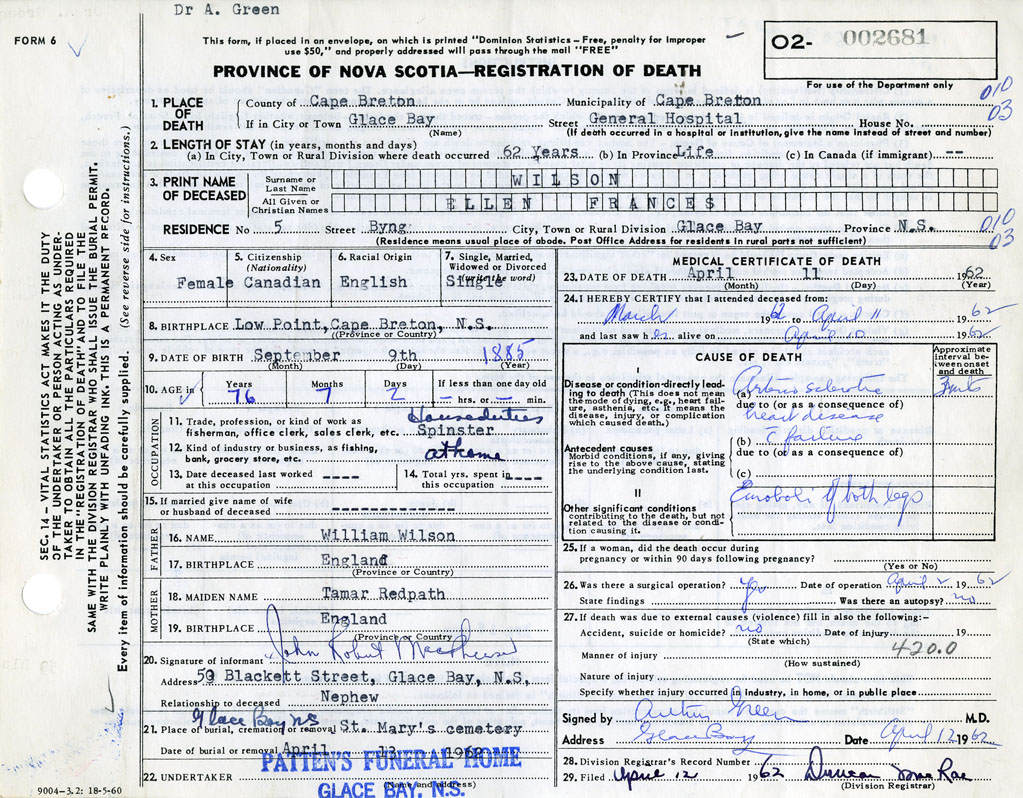 Dr A. Green
FORM 6
This form, if placed in an envelope, on which is printed "Dominion Statistics – Free, penalty for improper
use $50," and properly addressed will pass through the mail "FREE"
02- 002681
For use of the Department only
PROVINCE OF NOVA SCOTIA—REGISTRATION OF DEATH
010
03
1. PLACE OF DEATH
County of Cape Breton Municipality of Cape Breton
If in City or Town Glace Bay Street General Hospital House No.
(Name) (If death occurred in a hospital or institution, give the name instead of street and number)
2. LENGTH OF STAY (in years, months and days)
(a) In City, Town or Rural Division where death occurred 62 Years (b) In Province Life (c) In Canada (if immigrant) --
3. PRINT NAME OF DECEASED
Surname or Last Name WILSON
All Given or Christian Names ELLEN FRANCES
RESIDENCE No 5 Street Byng City, Town or Rural Division Glace Bay Province N.S.
(Residence means usual place of abode. Post Office Address for residents in rural parts not sufficient)
010
03
4. Sex
Female
5. Citizenship (Nationality)
Canadian
6. Racial Origin
English
7. Single, Married, Widowed or Divorced (write the word)
Single
8. BIRTHPLACE Low Point, Cape Breton, N.S.
(Province or Country)
9. DATE OF BIRTH September 9th 1885
(Month) (Day) (Year)
10. AGE in
Years Months Days If less than one day old
76 7 2 — hrs. or — min.
OCCUPATION
11. Trade, profession, or kind of work as
fisherman, office clerk, sales clerk, etc. Spinster
Houseduties
12. Kind of industry or business, as fishing,
bank, grocery store, etc. at home
13. Date deceased last worked
at this occupation ----
14. Total yrs. spent in
this occupation ----
15. If married give name of wife
or husband of deceased -------------
FATHER
16. NAME William Wilson
17. BIRTHPLACE England
(Province or Country)
MOTHER
18. MAIDEN NAME Tamar Redpath
19. BIRTHPLACE England
(Province or Country)
20. Signature of informant John Robert
Address 59 Blackett Street, Glace Bay, N.S,
Relationship to deceased Nephew
Glace Bay NS
21. Place of burial, cremation or removal St. Mary's cemetery
Date of burial or removal April 13 1962
22. UNDERTAKER
(Name and address)
PATTEN'S FUNERAL HOME
GLACE BAY, N.S.
9004–3.2: 18-5-60
MEDICAL CERTIFICATE OF DEATH
23. DATE OF DEATH April 11 1962
(Month) (Day) (Year)
24. I HEREBY CERTIFY that I attended deceased from:
March 1962 to April 11 1962
and last saw her alive on April 10 1962
CAUSE OF DEATH
Approximate interval between onset and death
I
Disease or condition directly leading to death (This does not mean
the mode of dying, e.g., heart failure, asthenia, etc. It means the
disease, injury, or complication
which caused death.)
(a) Arteriosclerotic
due to (or as a consequence of)
heart disease
Antecedent causes
Morbid conditions, if any, giving
rise to the above cause, stating
the underlying condition last.
(b) c̄ failure
due to (or as a consequence of)
(c)
II
Other significant conditions
contributing to the death, but not
related to the disease or condition causing it.
Emboli of both legs
25. If a woman, did the death occur during
pregnancy or within 90 days following pregnancy?
(Yes or No)
26. Was there a surgical operation? Yes Date of operation April 2 1962
State findings Was there an autopsy? no
27. If death was due to external causes (violence) fill in also the following:-
Accident, suicide or homicide? no Date of injury 19
(State which)
420.0
Manner of injury
(How sustained)
Nature of injury
Specify whether injury occurred in industry, in home, or in public place
Signed by Arthur Green M.D.
Address Glace Bay Date April 12 1962
28. Division Registrar's Record Number
29. Filed April 12 1962 Duncan MacRae
(Division Registrar)
SEC. 14 – VITAL STATISTICS ACT MAKES IT THE DUTY
OF THE UNDERTAKER OR PERSON ACTING AS UNDER-
TAKER TO OBTAIN ALL THE PARTICULARS REQUIRED
IN THE "REGISTRATION OF DEATH" AND TO FILE THE
SAME WITH THE DIVISION REGISTRAR WHO SHALL ISSUE THE BURIAL PERMIT.
WRITE PLAINLY WITH UNFADING INK. THIS IS A PERMANENT RECORD.
Every item of information should be carefully supplied. (See reverse side for instructions.)